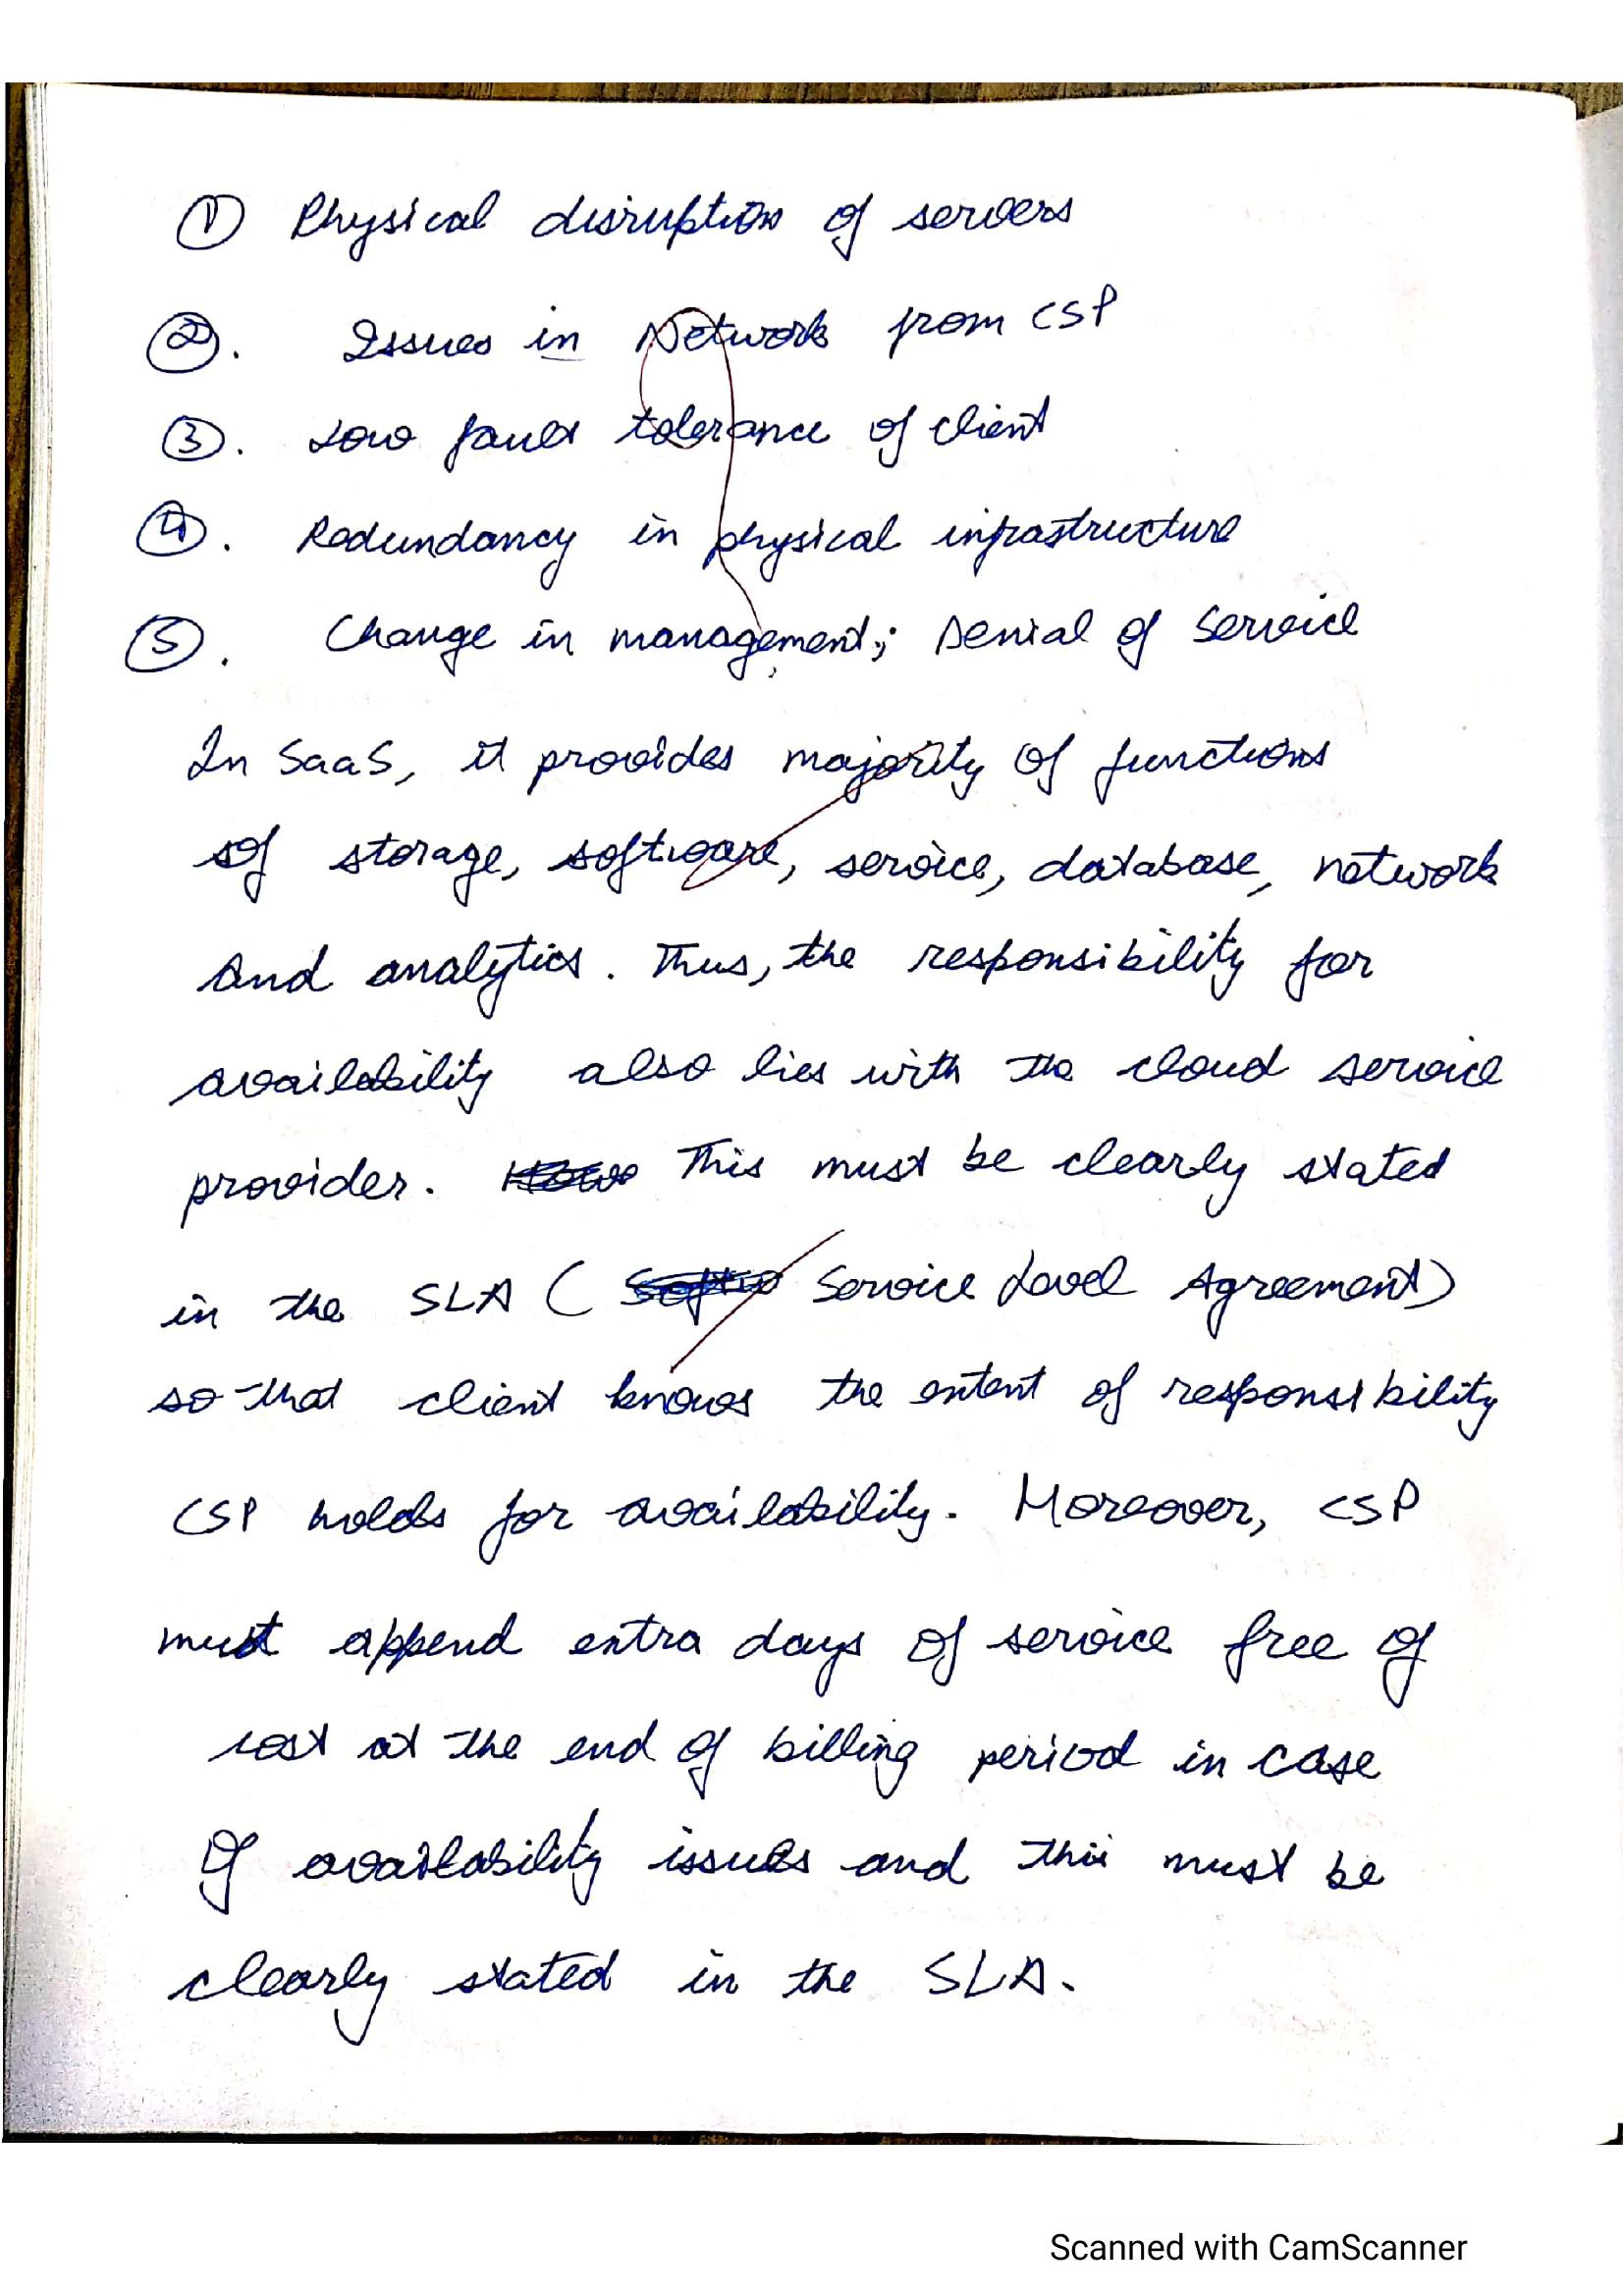 ① Physical disruption of servers
②. Issues in Network from CSP
③. Low fault tolerance of client
④. Redundancy in physical infrastructure
⑤. Change in management; Denial of Service
In SaaS, it provides majority of functions
of storage, software, service, database, network
and analytics. Thus, the responsibility for
availability also lies with the cloud service
provider. This must be clearly stated
in the SLA ( Service Level Agreement)
so that client knows the extent of responsibility
CSP holds for availability. Moreover, CSP
must append extra days of service free of
cost at the end of billing period in case
Of availability issues and this must be
clearly stated in the SLA.
Scanned with CamScanner